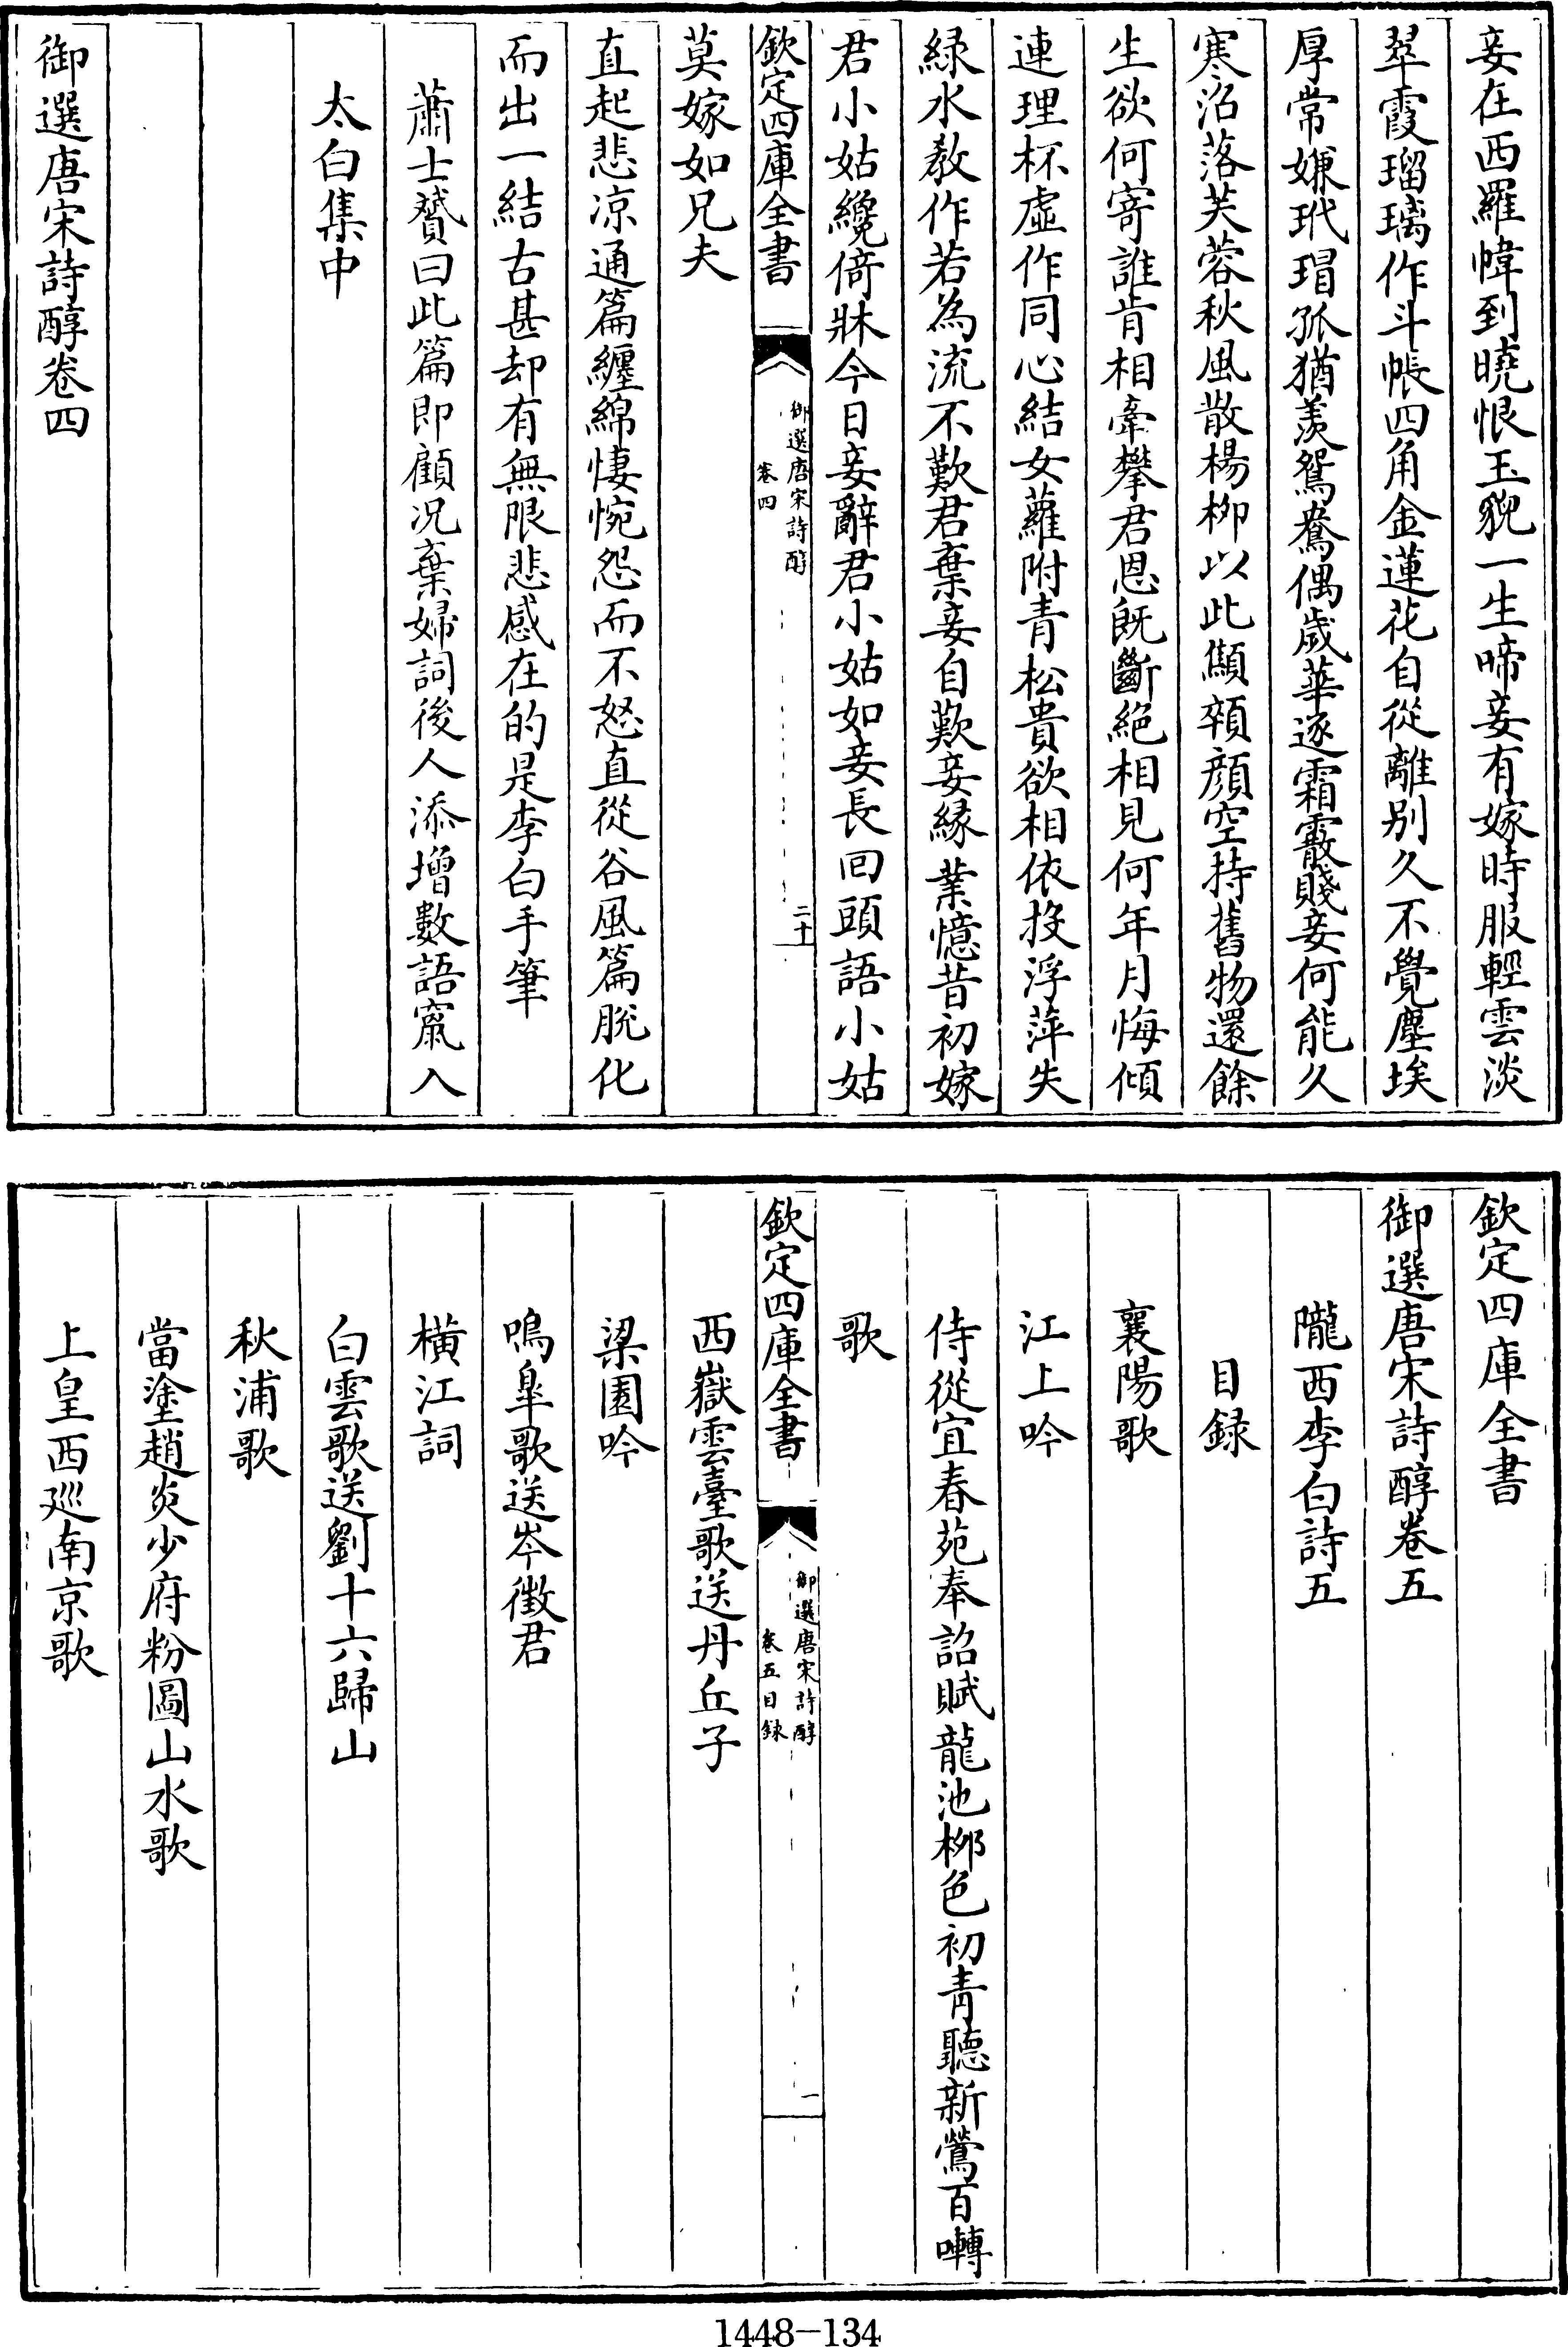 妾在西羅幃到曉恨玉貌一生啼妾有嫁時服輕雲淡
翠霞瑠璃作斗帳四角金蓮花自從離別久不覺塵埃
厚常嫌玳瑁孤猶羨鴛鴦偶歲華逐霜霰賤妾何能久
寒沼落芙蓉秋風散楊柳以此顦顇顔空持舊物還餘
生欲何寄誰肯相牽攀君恩既斷絶相見何年月悔傾
連理杯虛作同心結女蘿附青松貴欲相依投浮萍失
緑水教作若為流不歎君棄妾自歎妾緣業憶昔初嫁
君小姑纔倚牀今日妾辭君小姑如妾長回頭語小姑
欽定四庫全書
御選唐宋詩醇
卷四
二十
莫嫁如兄夫
直起悲凉通篇纏綿悽惋怨而不怒直從谷風篇脱化
而出一結古甚却有無限悲感在的是李白手筆
蕭士贇曰此篇即顧况棄婦詞後人添增數語竄入
太白集中
御選唐宋詩醇卷四
欽定四庫全書
御選唐宋詩醇卷五
隴西李白詩五
目録
襄陽歌
江上吟
侍從宜春苑奉詔賦龍池栁色初青聽新鶯百囀
歌
欽定四庫全書
御選唐宋詩醇
卷五目録
一
西嶽雲臺歌送丹丘子
梁園吟
鳴臯歌送岑徵君
橫江詞
白雲歌送劉十六歸山
秋浦歌
當塗趙炎少府粉圖山水歌
上皇西廵南京歌
1448-134